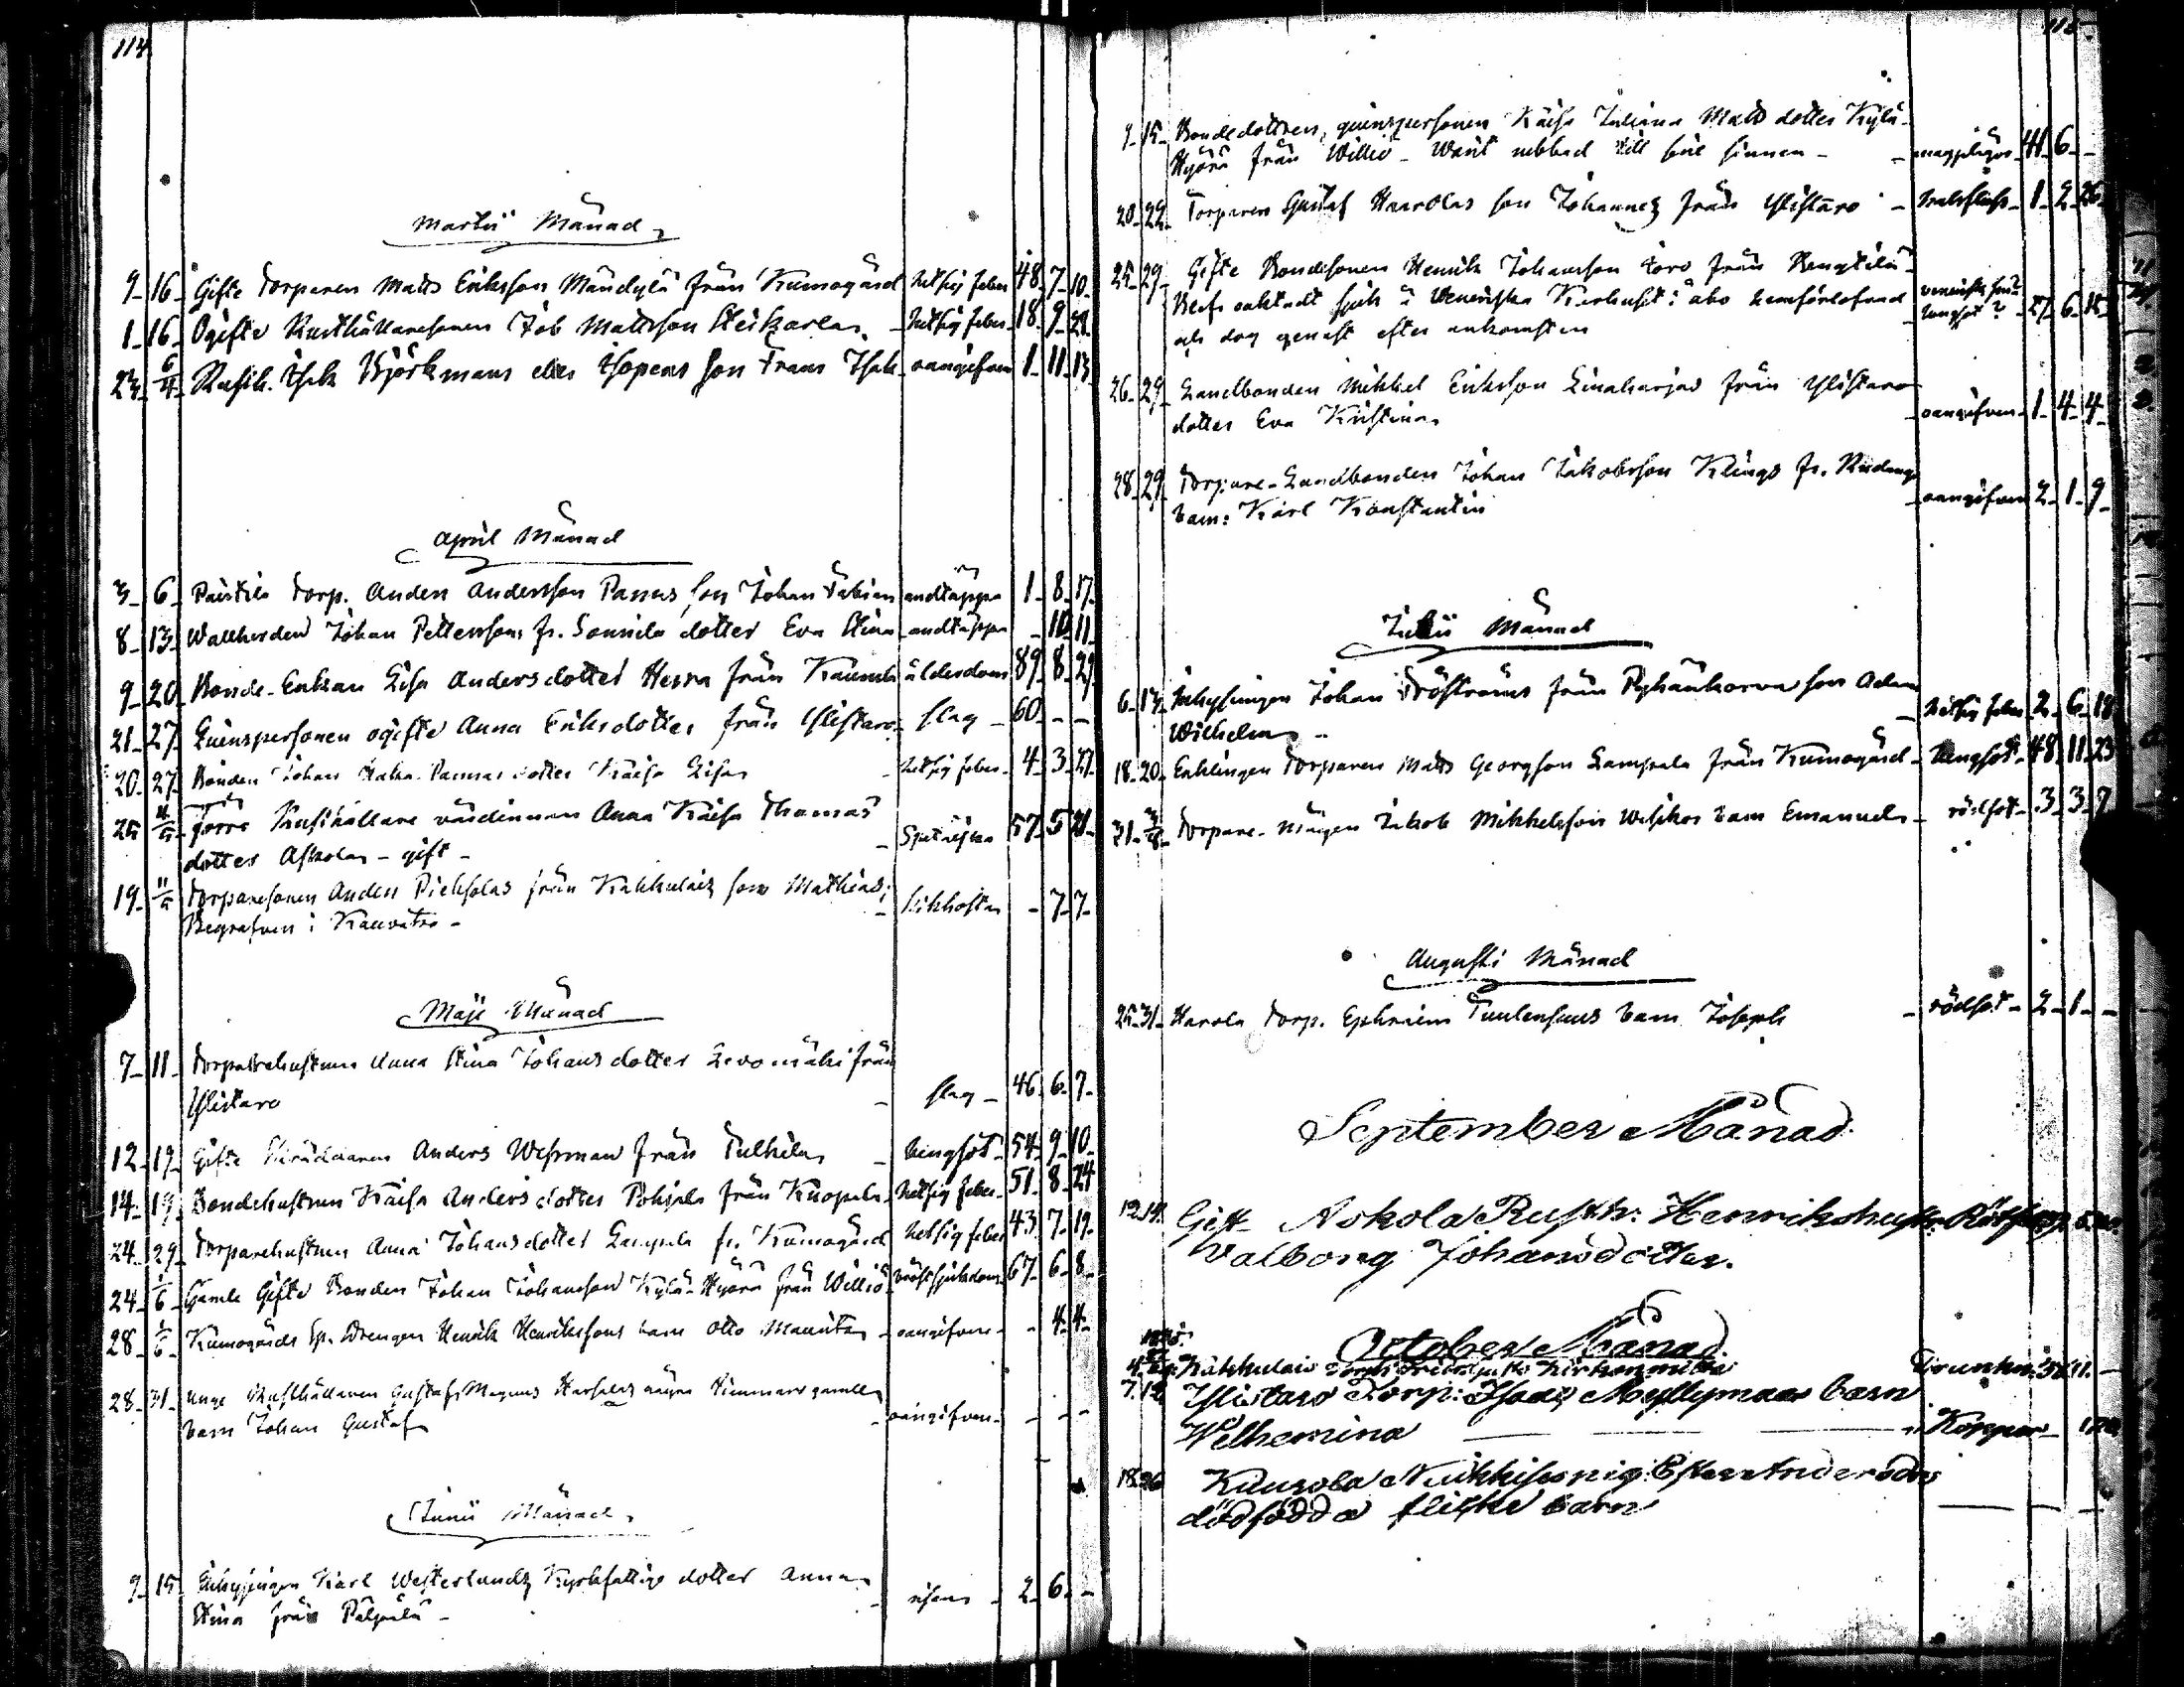 114
Martii Månad
9 16 Gifte Torparen Matts Eriksson Mändylä från Kumogård hetsig feber 48 7 10
1 16 Ogifte Rusthållaresonen Job Mattsson Steikarla hetsig feber 18 9 28
23 6/4 Rusth. Isak Björkmans eller Isopens son Frans Isak oangifven 1 11 13
April Månad
3 6 Päistilä Torp. Anders Andersson Panus son Johan Fabian andtäppa 1 8 17
8 13 Johan Pettersons fr. Sonnila dotter Eva Stina andtäppa - 10 11
9 20 Bonde-Enkan Lisa Andersdotter Herra från ålderdom 89 8 29
21 27 Qvinspersonen ogifte Anna Eriksdotter från Ylistaro slag 60 - -
20 27 Bonden Johan dotter Kaisa Lisa hetsig feber 4 3 27
25 4/5 förre Rusthållare värdinnan Anna Kaisa Thomas
dotter Askola - gift - Spetälska 57 5 21
19 11/5 Torparesonen Anders Piehsolas från Kakkulais son Mathias;
Begrafven i Kauvatsa - kikhosta - 7 7
Maji Månad
7 11 Torparehustrun Anna Stina Johansdotter Levomäki från
Ylistaro - slag - 46 6 7
12 19 Gifte Skräddaren Anders Wehrman från Tulkila - lungsot 54 9 10
14 19 Bondehustrun Kaisa Andersdotter Pohjala från Kuopila hetsig feber 51 8 24
24 29 Torparehustrun Anna Johansdotter Lampala fr. Kumogård hetsig feber 43 7 19
24 1/6 Gamle Gifte Bonden Johan Johansson Kylä-Hyörä från Williö bröstsjukdom 67 6 8
28 1/6 Kumogårds Sp. Drengen Henrik Henrikssons barn Otto Mauritz - oangifven - 4 4
28 31 Unge Rusthållaren Gustaf Magnus några timmars gamla
barn Johan Gustaf - oangifven - - -
Junii Månad
9 15 Inhysingen Karl Westerlunds Kyrkfattige dotter Anna
Stina från Pälpälä - risen - 2 6 -
115
9 15 Bondedottren, qvinspersonen Kaisa Juliana Matts dotter Kylä-
Hyörä från Williö - Warit rubbad till sine sinnen - magplågor 41 6 -
20 22 Torparen Gustaf Haarolas son Johannes från Ylistaro - halsfluss 1 2 26
25 29 Gifte Bondesonen Henrik Johansson Toro från Bengtilä
sjuk å Veneriska Kurhuset i Åbo hemförlofvad
och dog genast efter ankomsten lungsot? 27 6 15
26 29 Landbonden Mikkel Eriksson Linaharjas från Ylistaro
dotter Eva Kristina - oangifven 1 4 4
28 29 Torpare-Landbonden Johan Jakobsson Klings fr.
barn: Karl Konstantin - oangifven 2 1 9
Julii Månad
6 13 Inhysingen Johan från Pyhänkorva son Adam
Wilhelm - hetsig feber 2 6 18
18 20 Enklingen Torparen Matts Georgson Lampala från Kumogård - lungsot 48 11 23
31 3/8 Torpare-mågen Jakob Mikkelson barn Emanuel - rödsot 3 3 7
Augusti Månad
25 31 Harola Torp. Ephraim Tuulensuus barn Joseph - rödsot - 2 1 -
September Månad
12 14 Gift Askola Rusth: Henriks hustr.
Valborg Johansdotter.
October Månad
Kakkulais Drunkn.
7 12 Ylistaro Torp: Isaac Myllymaas barn
Welhemina Koppor
18 26 Kuurola Ester Andersdrs
dödfödda flicke barn